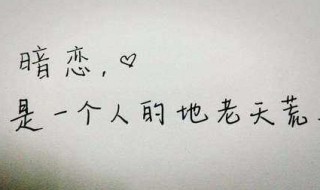 暗恋，♡
是一个人的地老天荒.